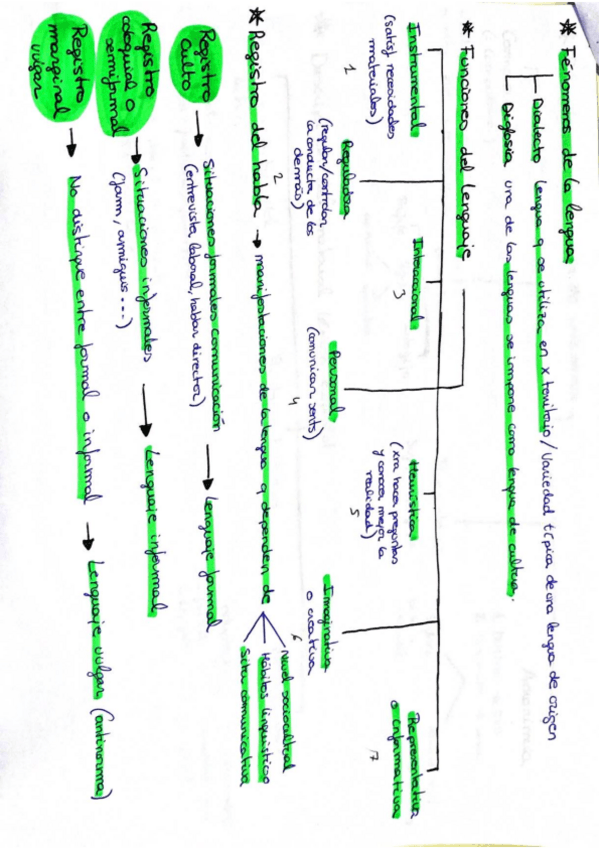 * Fénomenos de la lengua
Dialecto lengua q se utiliza en x territorio / Variedad típica de una lengua de origen
Diglosia una de las lenguas se impone como lengua de cultura.
* Funciones del lenguaje
Instrumental
(satisf. necesidades
materiales)
1
Reguladora
(regular/controlar
la conducta de los
demás)
2
Interaccional
3
Personal
(comunicar sents)
4
Heurística
(xra hacer preguntas
y conocer mejor la
realidad)
5
Imaginativa
o creativa
6
Representativa
o informativa
7
* Registro del habla → manifestaciones de la lengua q dependen de
Nivel sociocultral
Hábitos lingüístico
Situ comunicativa
Registro
culto → Situaciones formales comunicación → Lenguaje formal
(entrevista laboral, hablar director)
Registro
coloquial o
semiformal → Situaciones informales → Lenguaje informal
(fam, amigus...)
Registro
marginal
vulgar → No distingue entre formal o informal → Lenguaje vulgar (antinorma)